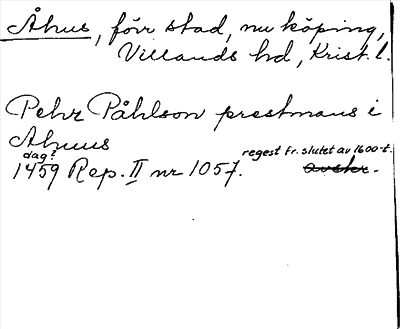 Åhus, förr stad, nu köping,
Villands hd, Krist. l.
Pehr Påhlson prestmans i
Ahuus
dag?
1459 Rep. II nr 1057. regest fr. slutet av 1600-t.
avskr.